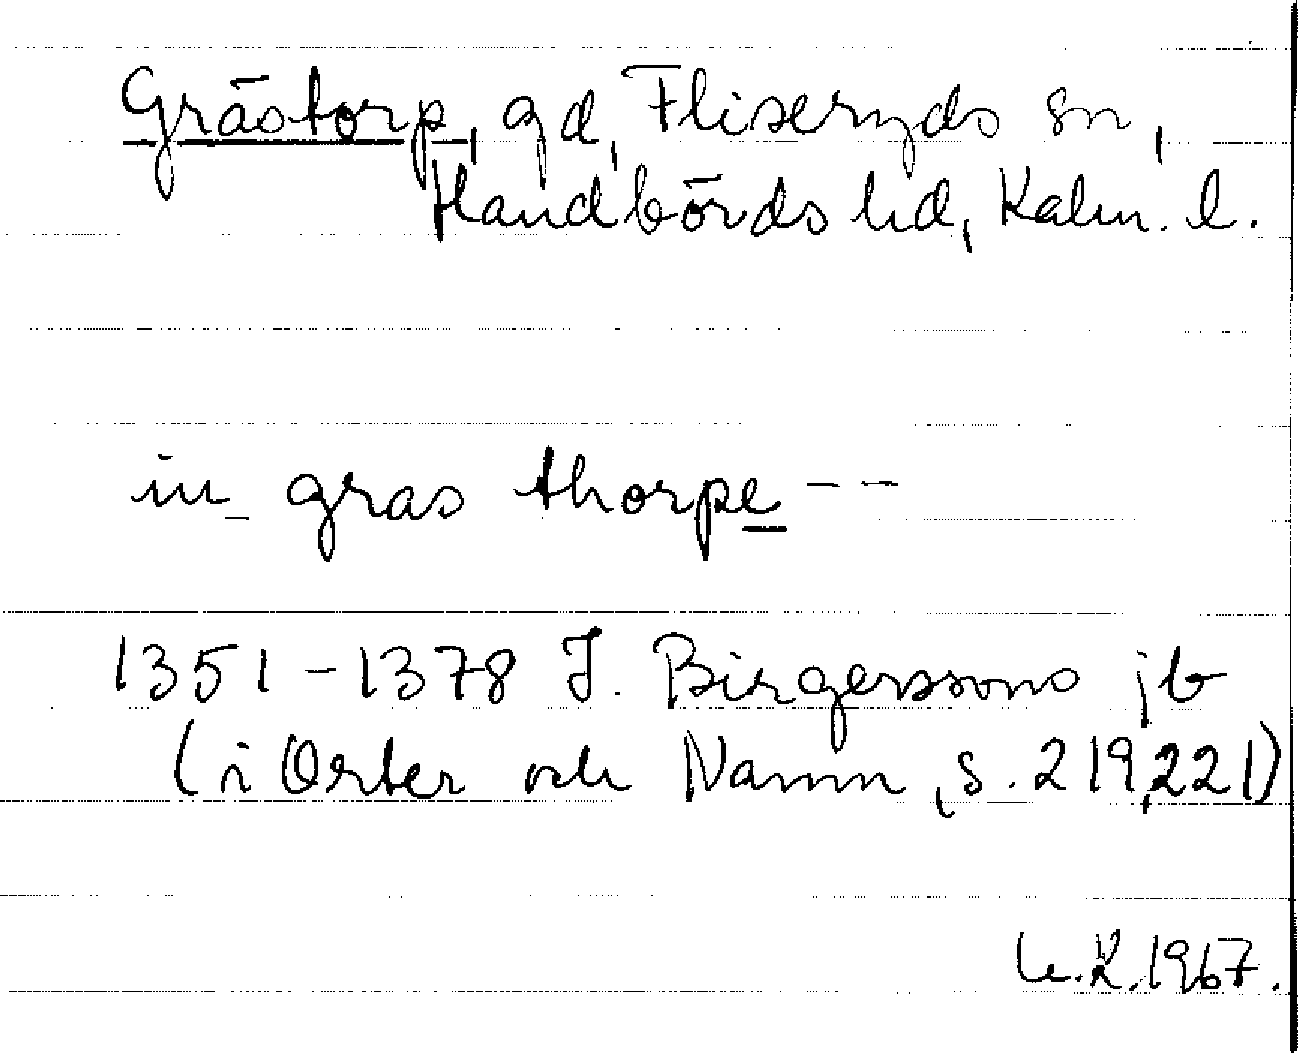 Grästorp, gd, Fliseryds sn,
Handbörds hd, Kalm. l.
in gras thorpe --
1351-1378 J. Birgerssons jb
(i Orter och Namn, s. 219, 221)
K. 1967.